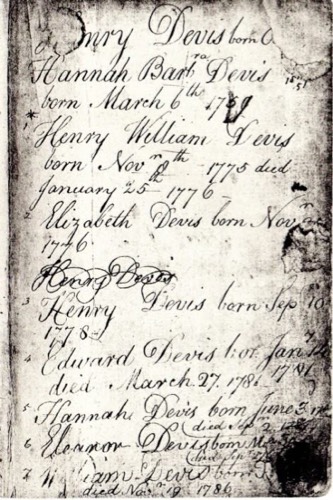 Henry Devis born
Hannah Barbra Devis
born March 6th
1 Henry William Devis
born Novr 8th 1775 died
January 25th 1776
2 Elizabeth Devis born Novr
1776
Henry Devis
3 Henry Devis born Sep 10
1778
4 Edward Devis bor Janr
died March 27. 1781
5 Hannah Devis born June 3
died Sep
6 Eleanor Devis born
died Sep
7 William Devis born
died Novr 19 1786